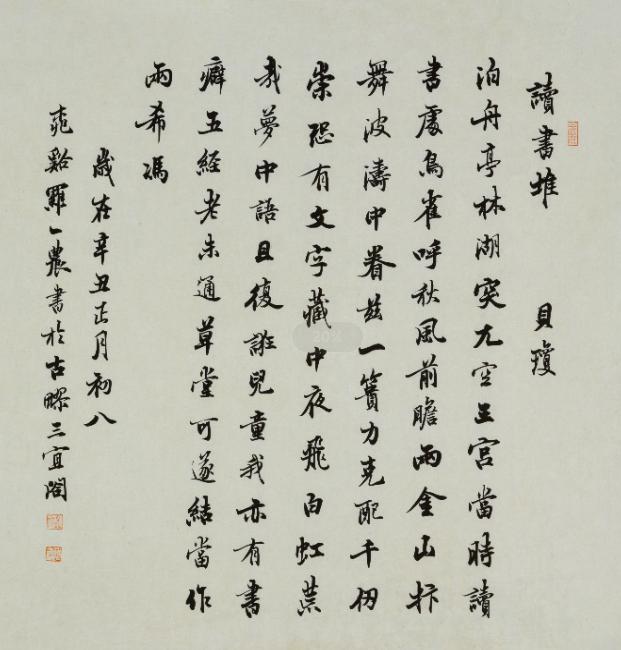 讀書堆 貝瓊
泊舟亭林湖突兀空王宮當時讀
書處鳥雀呼秋風前瞻兩金山抃
舞波濤中眷兹一簣力克配千仞
崇恐有文字藏中夜飛白虹荒
哉夢中語且復誑兒童我亦有書
癖五經老未通草堂可遂結當作
兩希馮
歲在辛丑正月初八
谿羅一農書於古三宜閣